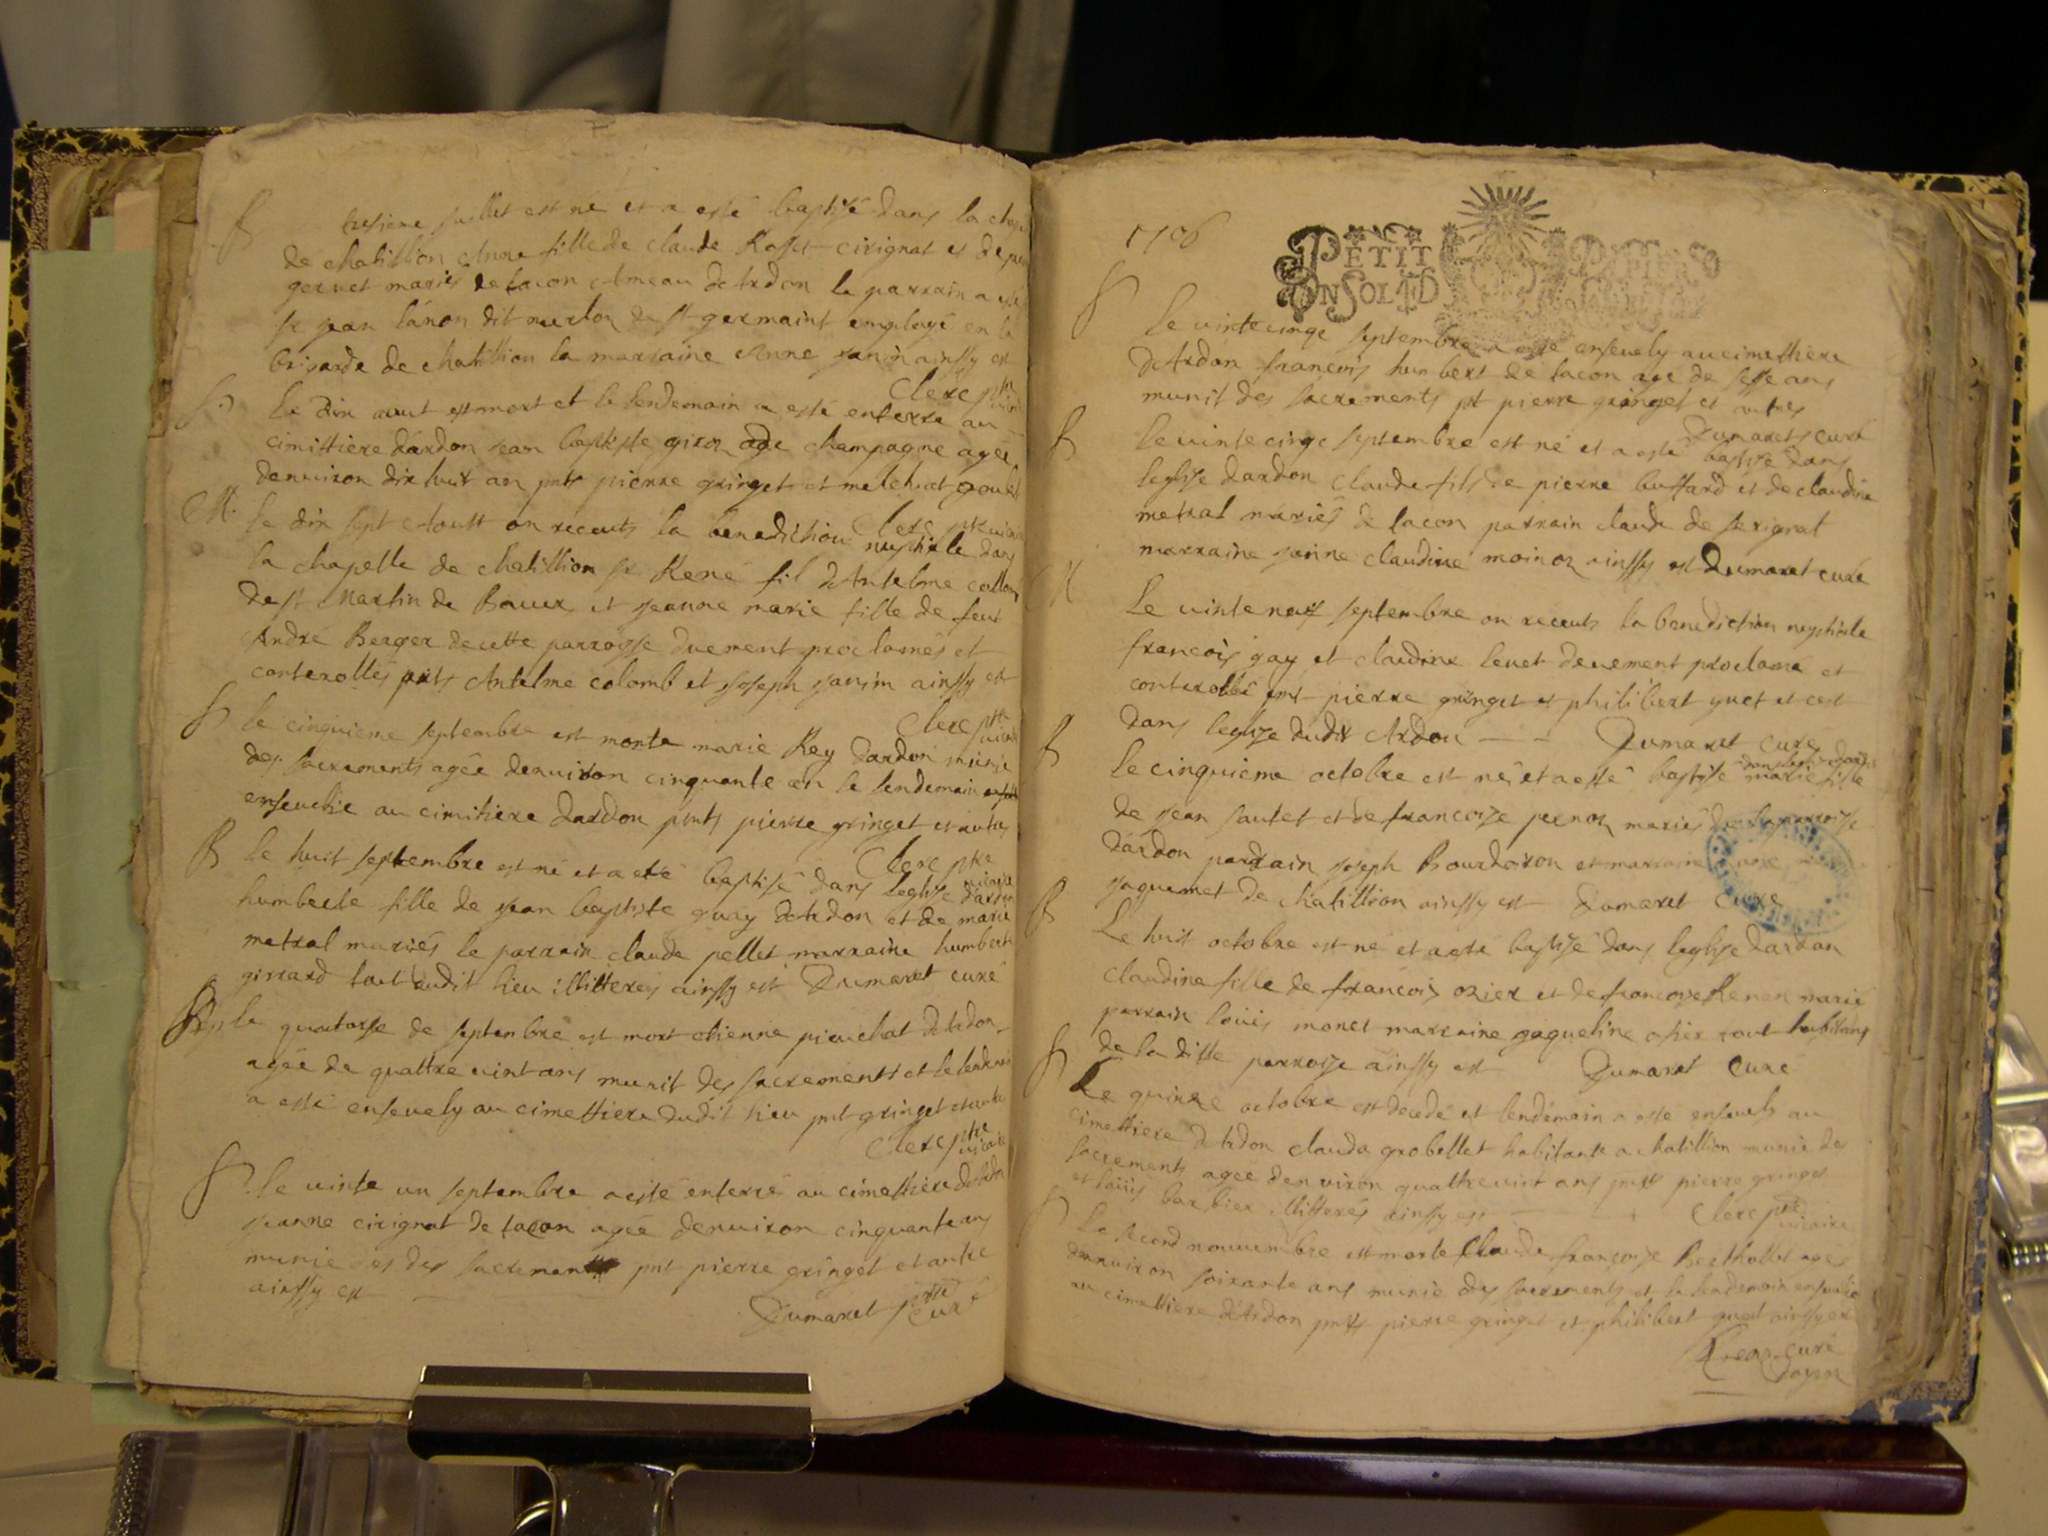 B
tresieme juillet est né et a esté baptisé dans la
de chatillion Anne fille de claude Roset cirignat et de
geruet mariés de tacon ameau de Ardon le parrain a esté
sr jean lánon dit merlon de st germaint employé en la
brigarde de chatillion la marraine Anne janin ainssy est
Clerc ptre
S
Le dix aout est mort et le lendemain a esté enterré au
cimittiere dárdon jean baptiste giroz champagne agée
denuiron dix huit an pnts pierre gringet et melchiot
Clerc ptre vicaire
M.
le dix sept Aoust on receuts la benediction nuptiale dans
la chapelle de chatillion sr René fil dAntelme collom
de st Martin de Baux et jeanne marie fille de feux
André Berger de cette parroisse duement proclamés et
conterollés pnts Antelme colomb et joseph jansin ainssy est
Clerc ptre vicaire
S
le cinquieme septembre est morte marie Rey dardon munie
des sacrements agée denuiron cinquante an le lendemain
enseuelie au cimitiere dardon pnts pierre gringet et autres
Clerc ptre vicaire
B
le huit septembre est né et a eté baptisé dans leglise dardon
humberte fille de jean baptiste quay dArdon et de marie
metral mariés le parrain claude pellet marraine humberte
girrard tout dudit lieu illitterés ainssy est Dumaret curé
le quatorse de septembre est mort etienne piauchat dArdon
agée de quattre vint ans munit des sacrements et le lendemain
a esté enseuely au cimettiere dudit lieu pnt gringet et autre
Clerc ptre vicaire
S
le vinte un septembre a esté enterré au cimettiere dArdon
jeanne cirignat de tacon agée denuiron cinquante ans
munie des sacrements pnt pierre gringet et autre
ainssy est
Dumaret ptre Curé
1706
PETIT PAPIER
UN SOL
S
le vinte cinqe septembre a esté enseuely au cimettiere
dArdon francois humbert de tacon age de sesse ans
munit des sacrements pt pierre gringet et autres
Dumaret curé
B
le vinte cinqe septembre est né et a esté baptisé dans
leglise dardon claude fils de pierre buffard et de claudine
metral mariés de tacon parrain claude de serignat
marraine janne claudine moinoz ainssy est Dumaret curé
M
le vinte neuf septembre on receuts la benediction nuptiale
francois gay et claudine leuet deuement proclamé et
conterollé pnt pierre gringet et philibert guet et cest
dans leglise dudit Ardon Dumaret curé
B
le cinquieme octobre est né et a esté baptisé marie fille
de jean sautet et de francoise pernoz mariés de la parroise
dárdon parrain joseph Bourdoron et marraine
jaquemet de chatillion ainssy est Dumaret Curé
B
le huit octobre est né et a esté baptizé dans leglise dardon
claudine fille de francois ozier et de francoise Renen marié
parrain loüis monet marraine jaqueline osier tout habitans
de la ditte parroise ainssy est Dumaret Curé
S
Le quinze octobre est decedé et lendemain a esté enseuely au
cimettiere dArdon clauda grobellet habitante a chatillion munie de
sacrements agee denuiron quattre vint ans pnts pierre gringet
et loüis barbier illitterés ainssy est Clerc ptre vicaire
S
Le second nouuembre est morte Claude francoise Berthollet agée
denuiron soixante ans munie des sacrements et le lendemain enseuelie
au cimettiere dArdon pnts pierre gringet et philibert guet ainssy est
curé